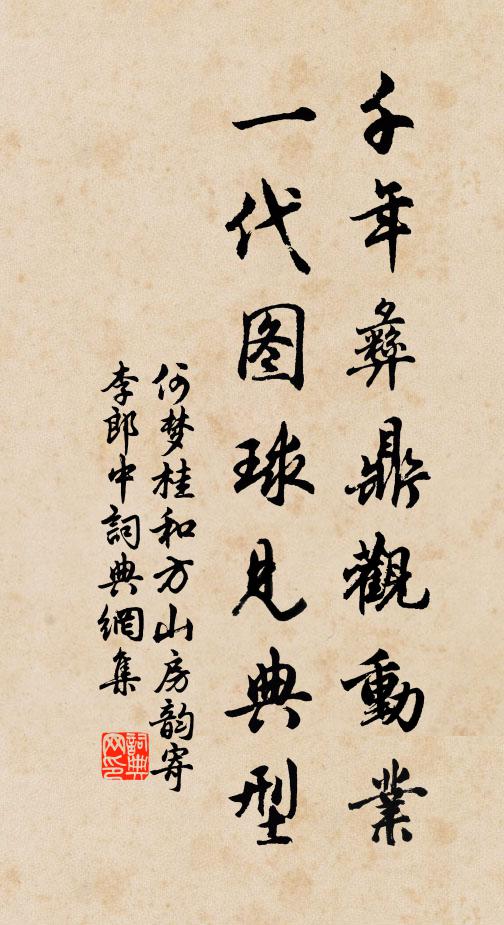 千年彝鼎觀動業
一代图球見典型
何梦桂和方山房韵寄
李郎中詞典網集
詞典网印